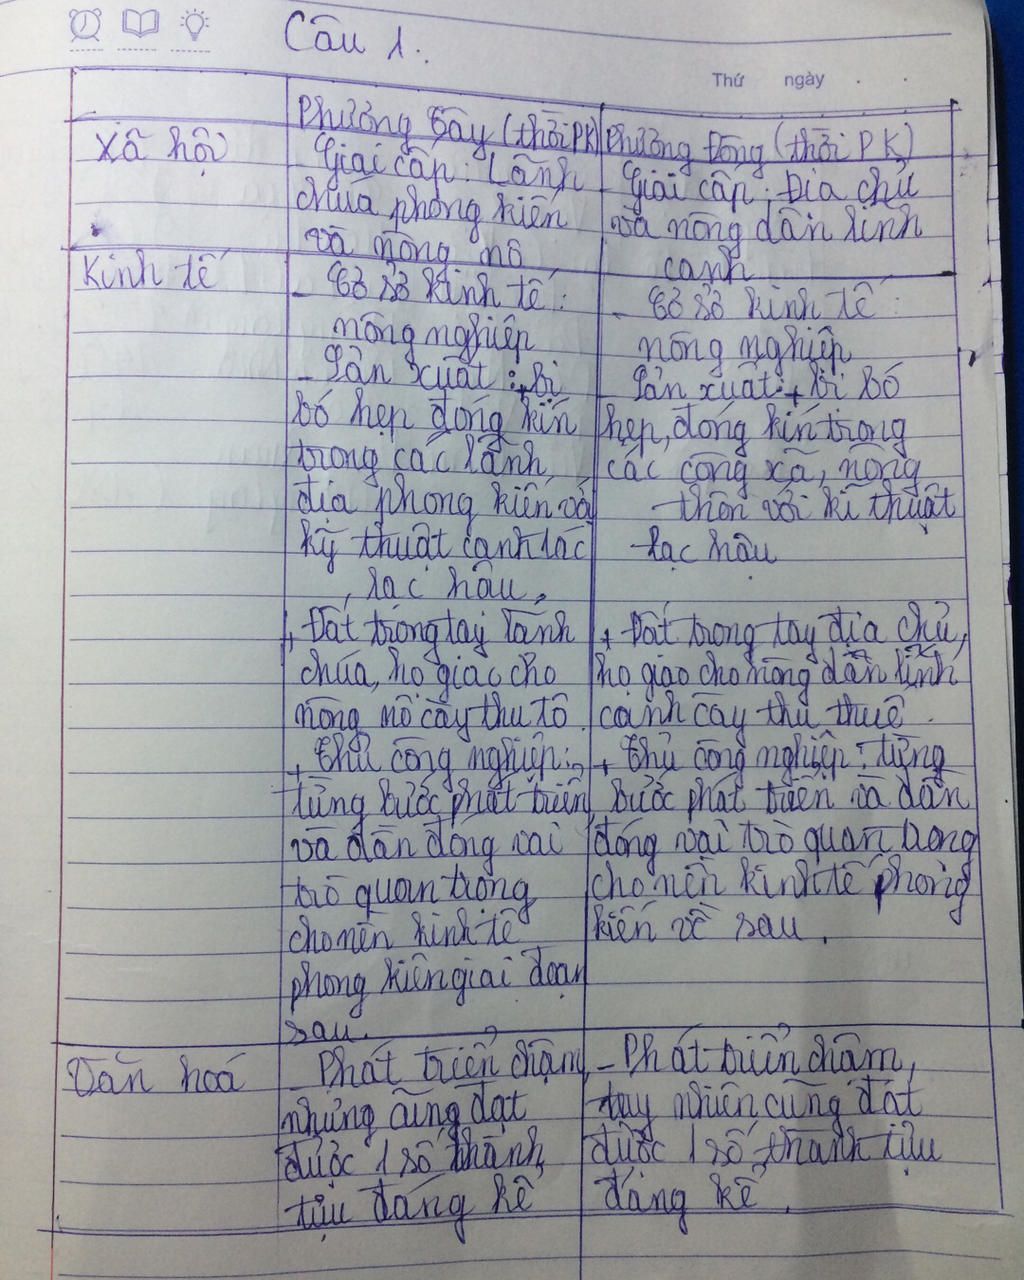 Câu 1.
Thứ ngày . .
Phương Tây (thời PK)
Phương Đông (thời PK)
Xã hội
- Giai cấp: Lãnh
chúa phong kiến
và nông nô
- Giai cấp: Địa chủ
và nông dân lĩnh
canh
Kinh tế
- Cơ sở kinh tế:
nông nghiệp
- Sản xuất: + bị
bó hẹp đóng kín
trong các lãnh
địa phong kiến và
kỹ thuật canh tác
lạc hậu,
+ Đất trong tay lãnh
chúa, họ giao cho
nông nô cày thu tô
+ Thủ công nghiệp:
từng bước phát triển
và dần đóng vai
trò quan trọng
cho nền kinh tế
phong kiến giai đoạn
sau.
- Cơ sở kinh tế:
nông nghiệp
- Sản xuất: + bị bó
hẹp, đóng kín trong
các công xã, nông
thôn với kĩ thuật
lạc hậu
+ Đất trong tay địa chủ,
họ giao cho nông dân lĩnh
canh cày thu thuê.
+ Thủ công nghiệp: từng
bước phát triển và dần
đóng vai trò quan trong
cho nền kinh tế phong
kiến về sau.
Văn hoá
- Phát triển chậm,
nhưng cũng đạt
được 1 số thành
tựu đáng kể
- Phát triển chậm,
tuy nhiên cũng đạt
được 1 số thành tựu
đáng kể.